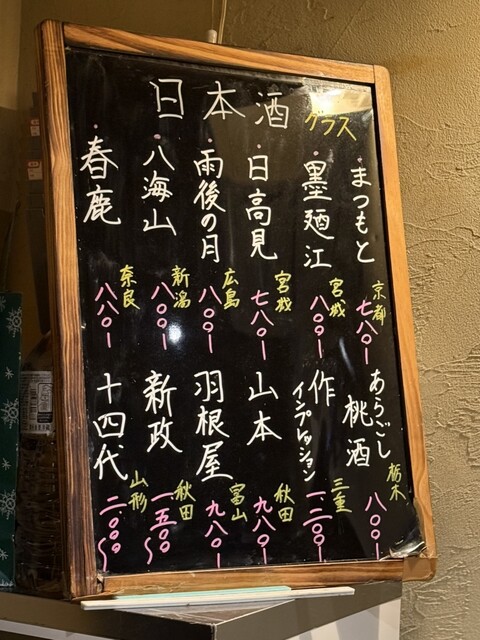 日本酒
グラス
・まつもと
京都
七八〇ー
・墨廼江
宮城
八〇〇ー
・日高見
宮城
七八〇ー
・雨後の月
広島
八〇〇ー
・八海山
新潟
八〇〇ー
・春鹿
奈良
八八〇ー
あらごし
桃酒
栃木
八〇〇ー
作
インプレッション
三重
一二〇〇ー
山本
秋田
九八〇ー
羽根屋
富山
九八〇ー
新政
秋田
一五〇〇〜
十四代
山形
二〇〇〇〜